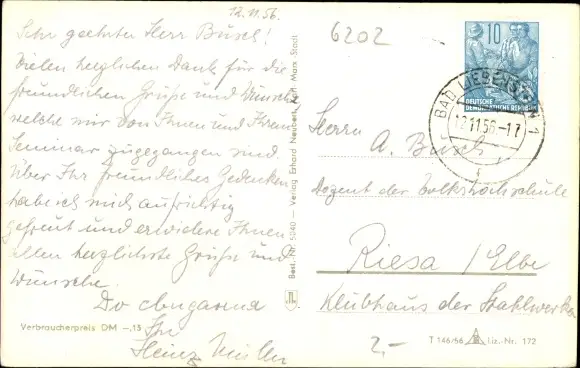 12.11.56.
Sehr geehrter Herr Busch!
Vielen herzlichen Dank für die
freundlichen Grüße und Wünsche
welche mir von Ihnen und Ihrem
Seminar zugegangen sind.
Über Ihr freundliches Gedenken
habe ich mich aufrichtig
gefreut und erwidere Ihnen
allen herzlichste Grüße und
Wünsche.
Ihr
Heinz Müller
Verbraucherpreis DM -,15
Best.-Nr. 5040 — Verlag Erhard Neubert, Karl-Marx-Stadt
6202
10
DEUTSCHE
DEMOKRATISCHE REPUBLIK
BAD LIEBENSTEIN 1
12.11.56-17
f
Herrn
A. Busch,
Dozent der Volkshochschule
Riesa / Elbe
Klubhaus der Stahlwerker
2,-
T 146/56 Liz.-Nr. 172